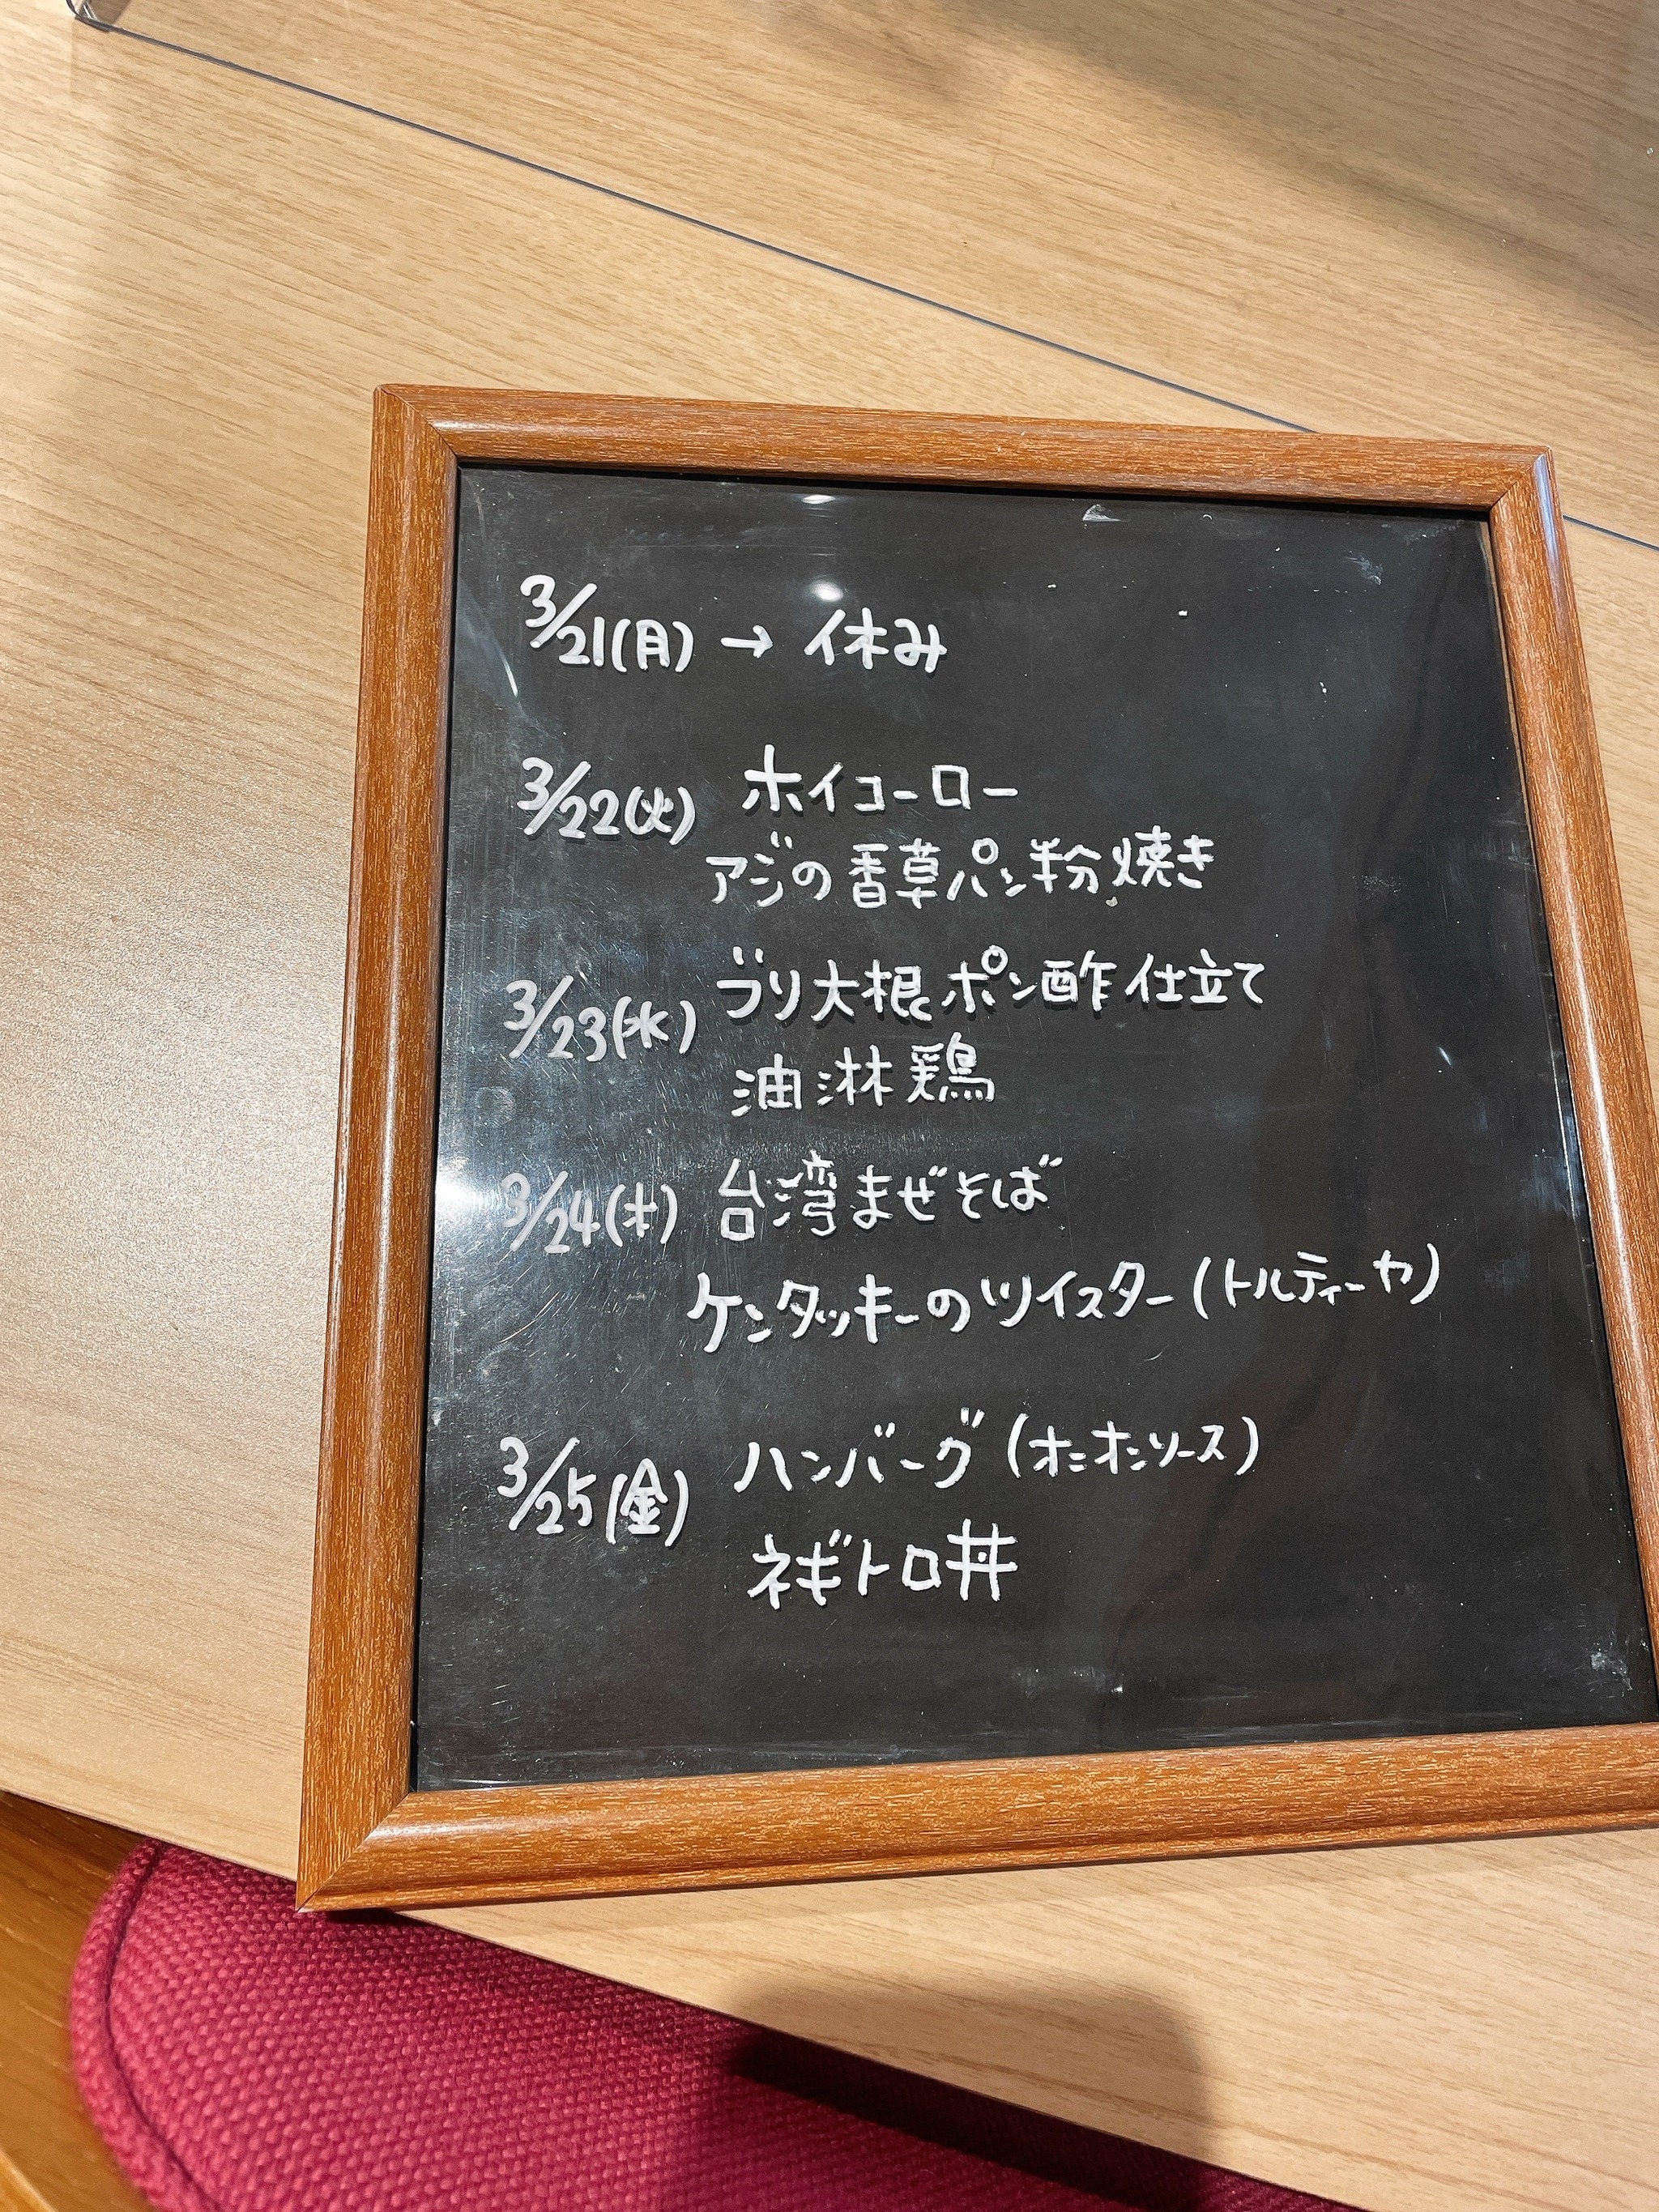 3/21(月) → 休み
3/22(火) ホイコーロー
アジの香草パン粉焼き
3/23(水) ブリ大根ポン酢仕立て
油淋鶏
3/24(木) 台湾まぜそば
ケンタッキーのツイスター(トルティーヤ)
3/25(金) ハンバーグ(オニオンソース)
ネギトロ丼